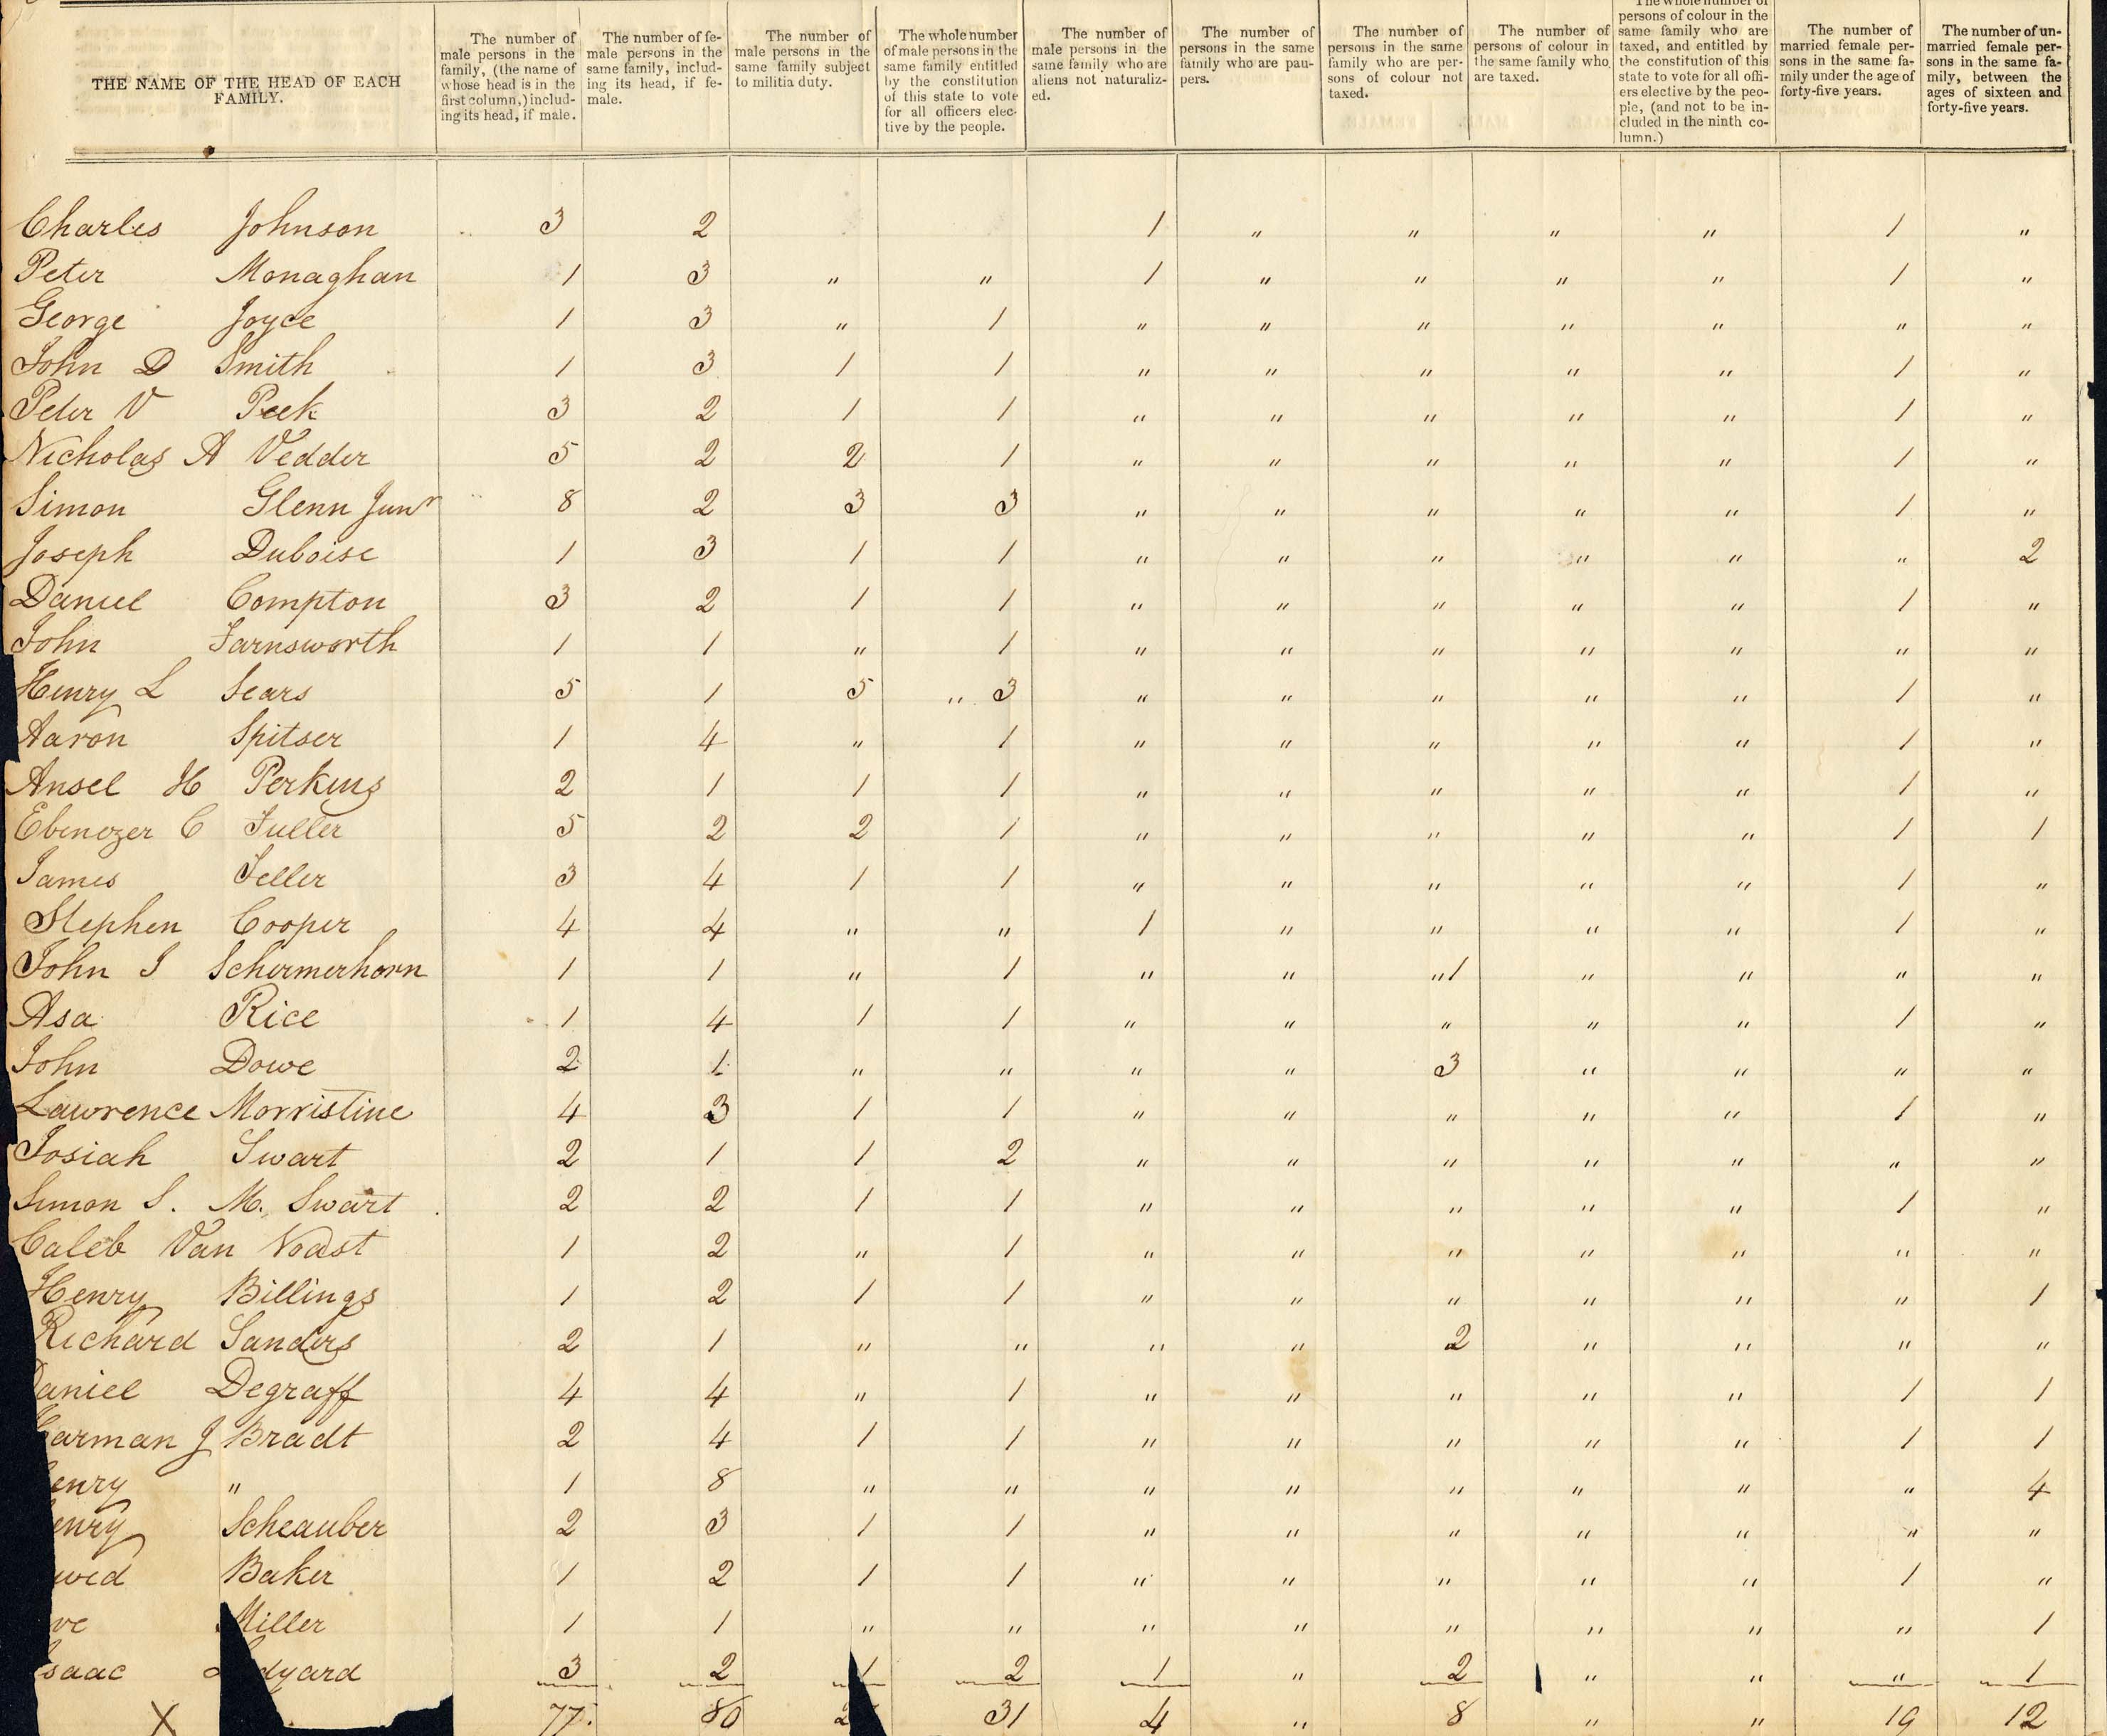 THE NAME OF THE HEAD OF EACH FAMILY.
The number of male persons in the family, (the name of whose head is in the first column,) including its head, if male.
The number of female persons in the same family, including its head, if female.
The number of male persons in the same family subject to militia duty.
The whole number of male persons in the same family entitled by the constitution of this state to vote for all officers elective by the people.
The number of male persons in the same family who are aliens not naturalized.
The number of persons in the same family who are paupers.
The number of persons in the same family who are persons of colour not taxed.
The number of persons of colour in the same family who are taxed.
The whole number of persons of colour in the same family who are taxed, and entitled by the constitution of this state to vote for all officers elective by the people, (and not to be included in the ninth column.)
The number of married female persons in the same family under the age of forty-five years.
The number of unmarried female persons in the same family, between the ages of sixteen and forty-five years.
Charles Johnson 3 2 1 " " " " 1 "
Peter Monaghan 1 3 " " 1 " " " " 1 "
George Joyce 1 3 " 1 " " " " " " "
John D Smith 1 3 1 1 " " " " " 1 "
Peter V Peek 3 2 1 1 " " " " " 1 "
Nicholas A Vedder 5 2 2 1 " " " " " 1 "
Simon Glenn Junr 8 2 3 3 " " " " " 1 "
Joseph Duboise 1 3 1 1 " " " " " " 2
Daniel Compton 3 2 1 1 " " " " " 1 "
John Farnsworth 1 1 " 1 " " " " " " "
Henry L Sears 5 1 5 " 3 " " " " " 1 "
Aaron Spitser 1 4 " 1 " " " " " 1 "
Ansel H Perkins 2 1 1 1 " " " " " 1 "
Ebenozer C Fuller 5 2 2 1 " " " " " 1 1
James Feller 3 4 1 1 " " " " " 1 "
Stephen Cooper 4 4 " " 1 " " " " 1 "
John S Schermerhorn 1 1 " 1 " " "1 " " " "
Asa Rice 1 4 1 1 " " " " " 1 "
John Dowe 2 1 " " " " 3 " " " "
Lawrence Morristine 4 3 1 1 " " " " " 1 "
Josiah Swart 2 1 1 2 " " " " " " "
Simon S. M. Swart 2 2 1 1 " " " " " 1 "
Caleb Van Voast 1 2 " 1 " " " " " " "
Henry Billings 1 2 1 1 " " " " " " 1
Richard Sanders 2 1 " " " " 2 " " " "
Daniel Degraff 4 4 " 1 " " " " " 1 1
arman J Bradt 2 4 1 1 " " " " " 1 1
enry " 1 8 " " " " " " " " 4
enry Scheauber 2 3 1 1 " " " " " " "
Baker 1 2 1 1 " " " " " 1 "
Miller 1 1 " " " " " " " " 1
saac dyard 3 2 1 2 1 " 2 " " " 1
X 77. 80 2 31 4 " 8 " " 19 12